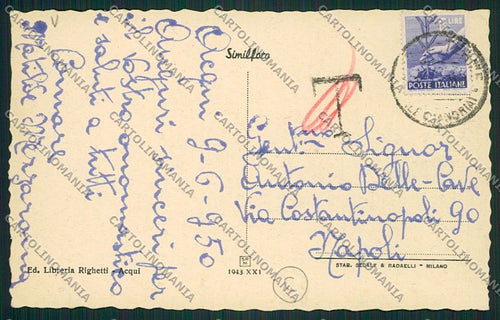 Acqui 9-6-950
Auguri sinceri per
il Vostro onomastico
e saluti a tutti
Comare
Similfoto
T
LIRE
POSTE ITALIANE
Gent. Signor
Antonio Delle-Cave
Via Costantinopoli 90
Napoli
Ed. Libreria Righetti - Acqui
1943-XXI
STAB. SEGALE & RADAELLI - MILANO
CARTOLINOMANIA